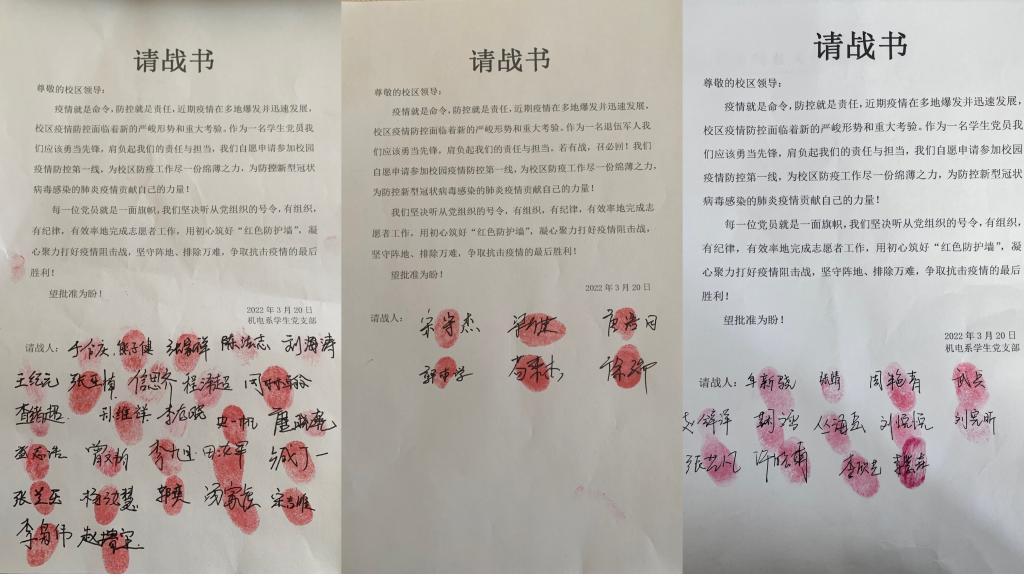 请战书
尊敬的校区领导：
疫情就是命令，防控就是责任，近期疫情在多地爆发并迅速发展，
校区疫情防控面临着新的严峻形势和重大考验。作为一名学生党员我
们应该勇当先锋，肩负起我们的责任与担当，我们自愿申请参加校园
疫情防控第一线，为校区防疫工作尽一份绵薄之力，为防控新型冠状
病毒感染的肺炎疫情贡献自己的力量！
每一位党员就是一面旗帜，我们坚决听从党组织的号令，有组织，
有纪律，有效率地完成志愿者工作，用初心筑好“红色防护墙”，凝
心聚力打好疫情阻击战，坚守阵地、排除万难，争取抗击疫情的最后
胜利！
望批准为盼！
2022 年 3 月 20 日
机电系学生党支部
请战人： 张家祥 刘海涛
李绪超 孙维祥 李启晓
李旭
张兰玉 郭爽 汤家宝
请战书
尊敬的校区领导：
疫情就是命令，防控就是责任，近期疫情在多地爆发并迅速发展，
校区疫情防控面临着新的严峻形势和重大考验。作为一名退伍军人我
们应该勇当先锋，肩负起我们的责任与担当，若有战，召必回！我们
自愿申请参加校园疫情防控第一线，为校区防疫工作尽一份绵薄之力，
为防控新型冠状病毒感染的肺炎疫情贡献自己的力量！
我们坚决听从党组织的号令，有组织，有纪律，有效率地完成志
愿者工作，用初心筑好“红色防护墙”，凝心聚力打好疫情阻击战，
坚守阵地、排除万难，争取抗击疫情的最后胜利！
望批准为盼！
2022 年 3 月 20 日
请战人： 宋学杰
请战书
尊敬的校区领导：
疫情就是命令，防控就是责任，近期疫情在多地爆发并迅速发展，
校区疫情防控面临着新的严峻形势和重大考验。作为一名学生党员我
们应该勇当先锋，肩负起我们的责任与担当，我们自愿申请参加校园
疫情防控第一线，为校区防疫工作尽一份绵薄之力，为防控新型冠状
病毒感染的肺炎疫情贡献自己的力量！
每一位党员就是一面旗帜，我们坚决听从党组织的号令，有组织，
有纪律，有效率地完成志愿者工作，用初心筑好“红色防护墙”，凝
心聚力打好疫情阻击战，坚守阵地、排除万难，争取抗击疫情的最后
胜利！
望批准为盼！
2022 年 3 月 20 日
机电系学生党支部
请战人： 牟新骁 张婧 周艳青 武兵
丛语玉 刘悦悦 刘昊昕
张艺凡 李欣芝